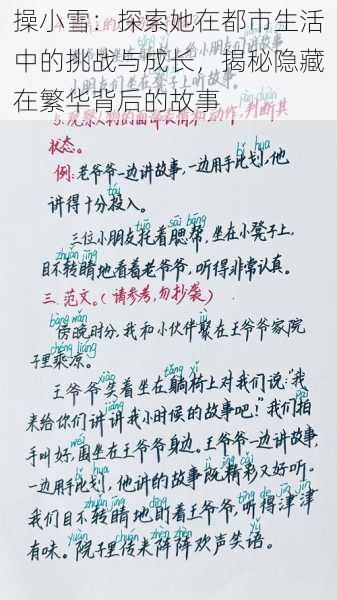 操小雪：探索她在都市生活
中的挑战与成长，揭秘隐藏
在繁华背后的故事
5.观察人物的面部表情和动作,判断其
pàn duàn
状态。
bǐ huà
例:老爷爷一边讲故事,一边用手比划,他
讲得十分投入。
tuō sāi bāng
三位小朋友托着腮帮,坐在小凳子上,
zhuǎn jīng
目不转睛地看着老爷爷,听得非常认真。
三.范文。(请参考,勿抄袭)
bàng wǎn
傍晚时分,我和小伙伴聚在王爷爷家院
chéng liáng
子里乘凉。
xiào tǎng yǐ
王爷爷笑着坐在躺椅上对我们说:“我
jiǎng
来给你们讲讲我小时候的故事吧!”我们拍
wéi
手叫好,围坐在王爷爷身边。王爷爷一边讲故事,
bǐ huà
一边用手比划,他讲的故事既精彩又好听。
zhuǎn jīng dīng
我们目不转睛地盯着王爷爷,听得津津
yuàn zhèn
有味。院子里传来阵阵欢声笑语。